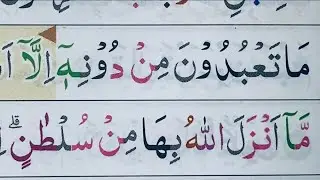 مَا تَعْبُدُوْنَ مِنْ دُوْنِهٖۤ اِلَّاۤ
مَّاۤ اَنْزَلَ اللّٰهُ بِهَا مِنْ سُلْطٰنٍ ؕ